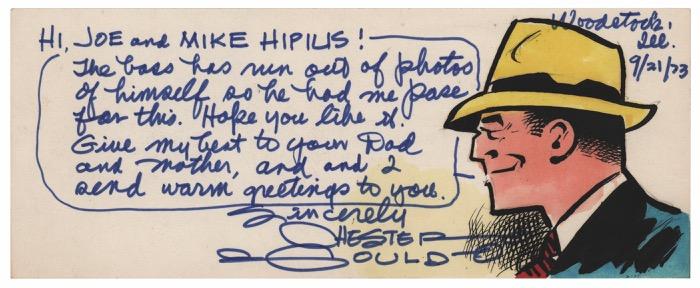 Woodstock,
Ill.
9/21/73
HI, JOE and MIKE HIPILIS!
The boss has run out of photos
of himself so he had me pose
for this. Hope you like it.
Give my best to your Dad
and mother, and and I
send warm greetings to you.
Sincerely
CHESTER
GOULD